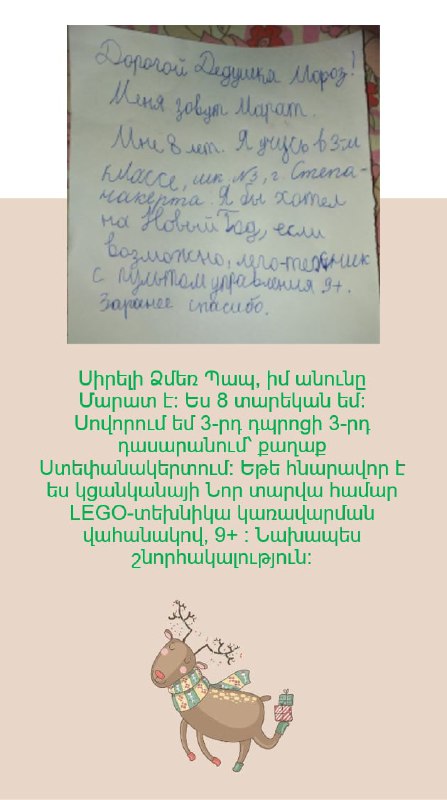 Дорогой Дедушка Мороз!
Меня зовут Марат.
Мне 8 лет. Я учусь в 3-м
классе, шк. №3, г. Степа-
накерта. Я бы хотел
на Новый Год, если
возможно, лего-техник
с пультом управления 9+.
Заранее спасибо.
Սիրելի Ձմեռ Պապ, իմ անունը
Մարատ է: Ես 8 տարեկան եմ:
Սովորում եմ 3-րդ դպրոցի 3-րդ
դասարանում՝ քաղաք
Ստեփանակերտում: Եթե հնարավոր է
ես կցանկանայի Նոր տարվա համար
LEGO-տեխնիկա կառավարման
վահանակով, 9+ : Նախապես
շնորհակալություն: